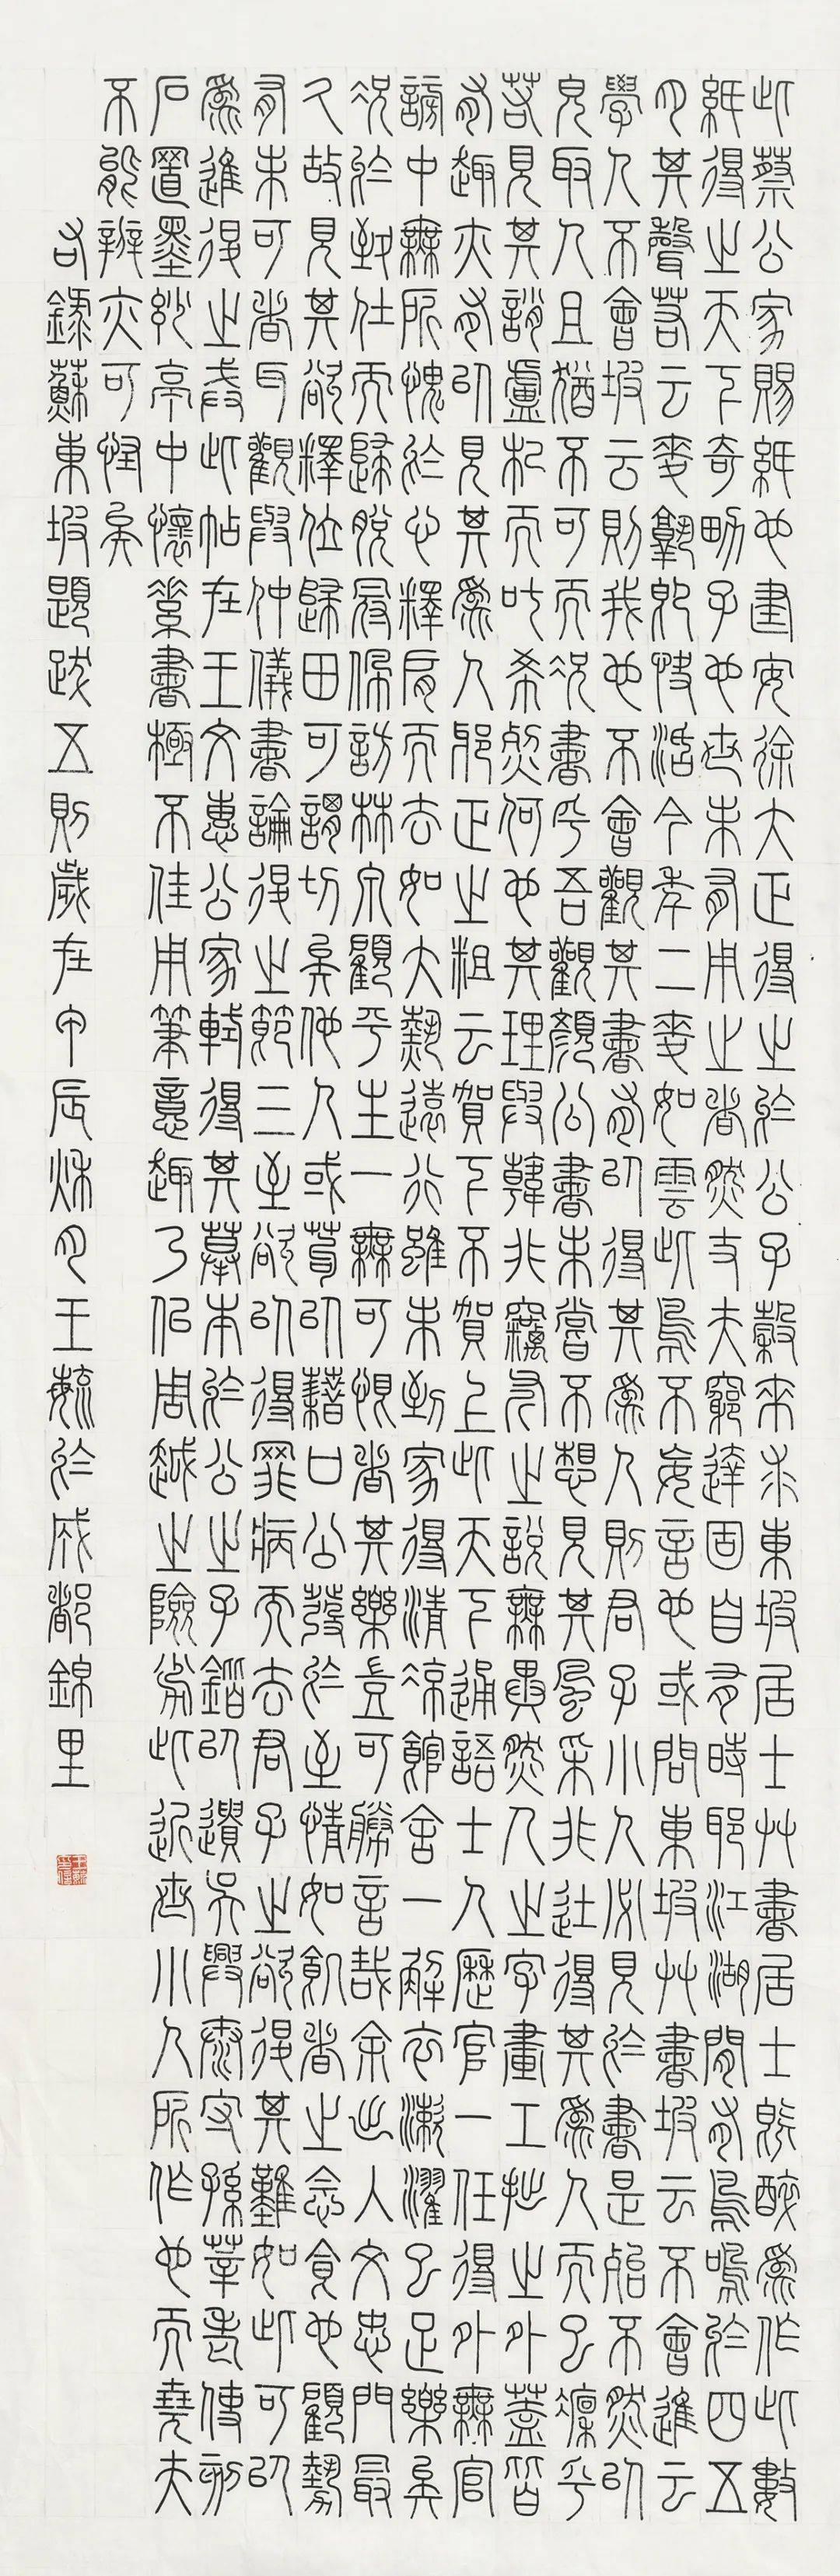 此蔡公家賜紙也建安徐大正得之於公子穀來求東坡居士草書居士既醉爲作此數
紙得之天下奇男子也世未有用之者然丈夫窮達固自有時耶江湖間有鳥鳴於四五
月其聲若云麥熟即快活今年二麥如雲此鳥不妄言也或問東坡草書坡云不會進云
學人不會坡云則我也不會觀其書有以得其爲人則君子小人必見於書是殆不然以
皃取人且猶不可而況書乎吾觀顏公書未嘗不想見其風采非徒得其爲人而已凜乎
若見其誚盧杞而叱希烈何也其理與韓非竊斧之說無異然人之字畫工拙之外蓋皆
有趣亦有以見其爲人邪正之粗云賀下不賀上此天下通語士人歷官一任得外無官
謗中無所愧於心釋肩而去如大熱遠行雖未到家得清涼館舍一解衣漱濯已足樂矣
況於致仕而歸脫冠佩訪林泉顧平生一無可恨者其樂豈可勝言哉余出入文忠門最
久故見其欲釋位歸田可謂切矣他人或苟以藉口公發於至情如飢者之念食也顧勢
有未可者耳觀與仲儀書論退之節三至欲以得罪病而去君子之欲退其難如此可以
爲進退之戒此帖在王文惠公家軾得其摹本於公之子以遺吳興太守孫莘老使刻
石置墨妙亭中懷素書極不佳用筆意趣乃似周越之險劣此近世小人所作也而堯夫
不能辨亦可怪矣
右錄蘇東坡題跋五則歲在甲辰秋月王毓於成都錦里